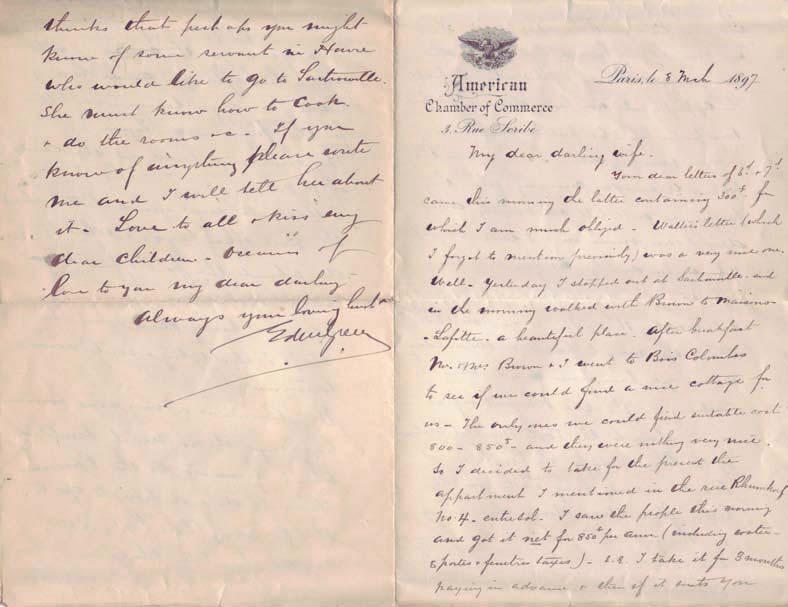 thinks that perhaps you might
know of some servant in Havre
who would like to go to Sartrouville.
She must know how to Cook
+ do the rooms +c - If you
know of anything please write
me and I will tell her about
it - Love to all + kiss my
dear children - Oceans of
love to you my dear darling
Always your loving husbd
American
Chamber of Commerce
3, Rue Scribe
Paris, le 8 Mch 1897
My dear darling wife.
Your dear letters of 6th + 7th
came this morning the latter containing 300f for
which I am much obliged - letter (which
I forgot to mention previously) was a very nice one.
Well - Yesterday I stopped out at Sartrouville - and
in the morning walked with Brown to Maisons
- Lafitte - a beautiful place. After breakfast
Mr. + Mrs Brown + I went to Bois Colombes
to see if we could find a nice cottage for
us - The only ones we could find suitable cost
800 - 850f - and they were nothing very nice.
So I decided to take for the present the
appartment I mentioned in the rue Rhumkorf
No. 4 - entresol - I saw the people this morning
and got it net for 850f per ann (including water -
+ portes + fenetres taxes) - I take it for 3 months
paying in advance + then if it suits you